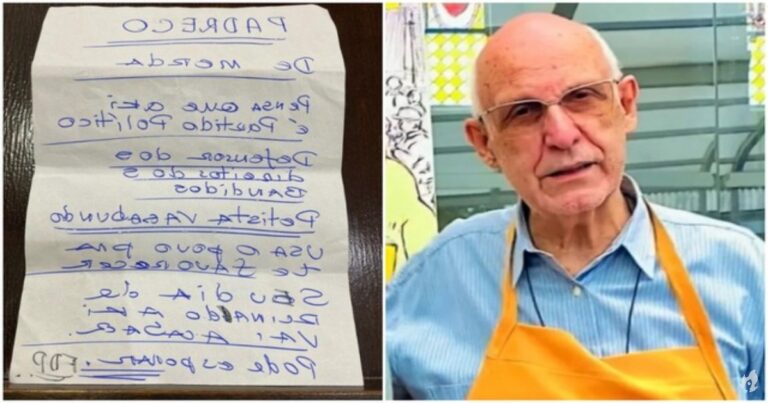 PADRECO
De MERDA
PENSA QUE AKi
É PARTIDO POLÍTICO
Defensor dos
direitos dos
BANDIDOS
Petista VAGABUNDO
USA O POVO PRA
te FAVORECER
SEU DIA de
REINADO AKi
VAi ACABAR.
Pode esperar. FDP